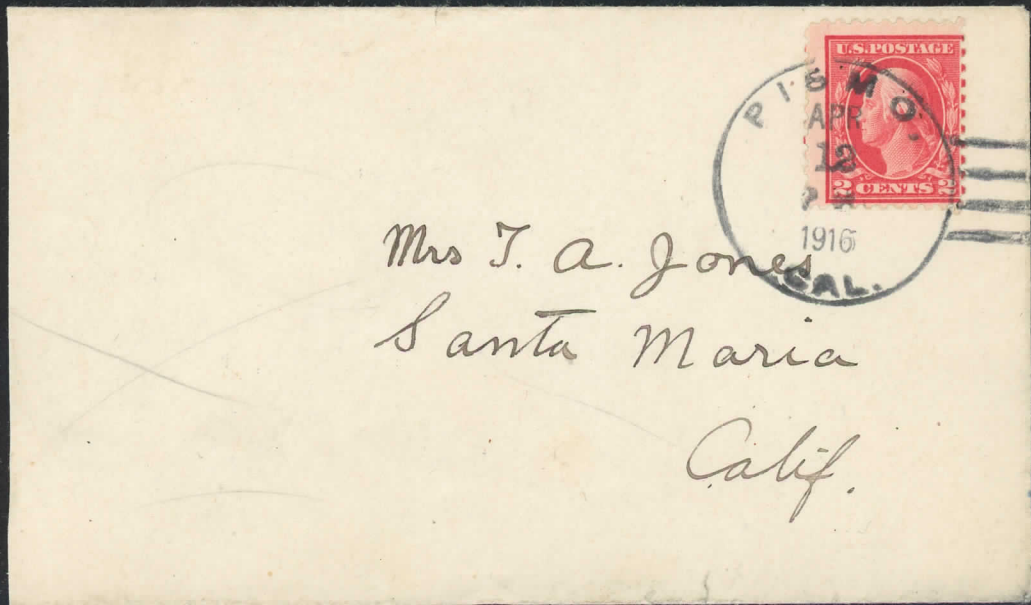 U.S. POSTAGE
2 CENTS 2
PISMO,
APR
1916
CAL.
Mrs T. A. Jones
Santa Maria
Calif.